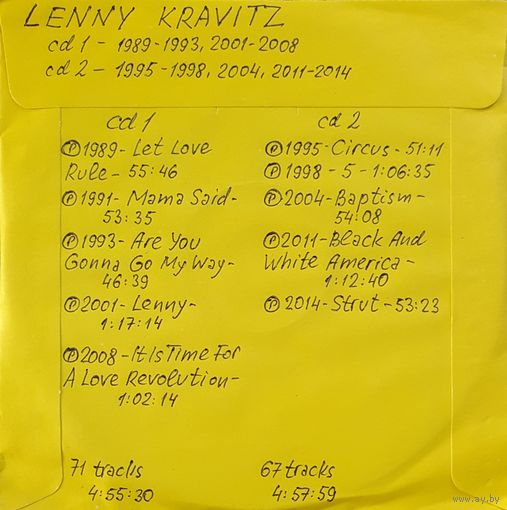 LENNY KRAVITZ
cd 1 - 1989-1993, 2001-2008
cd 2 - 1995-1998, 2004, 2011-2014
cd 1
Ⓟ1989- Let Love
Rule- 55:46
Ⓟ1991- Mama Said-
53:35
Ⓟ1993- Are You
Gonna Go My Way-
46:39
Ⓟ2001- Lenny-
1:17:14
Ⓟ2008- It Is Time For
A Love Revolution-
1:02:14
71 tracks
4:55:30
cd 2
Ⓟ1995-Circus- 51:11
Ⓟ1998 - 5 - 1:06:35
Ⓟ2004-Baptism-
54:08
Ⓟ2011-Black And
White America-
1:12:40
Ⓟ2014-Strut-53:23
67 tracks
4:57:59
www.ay.by